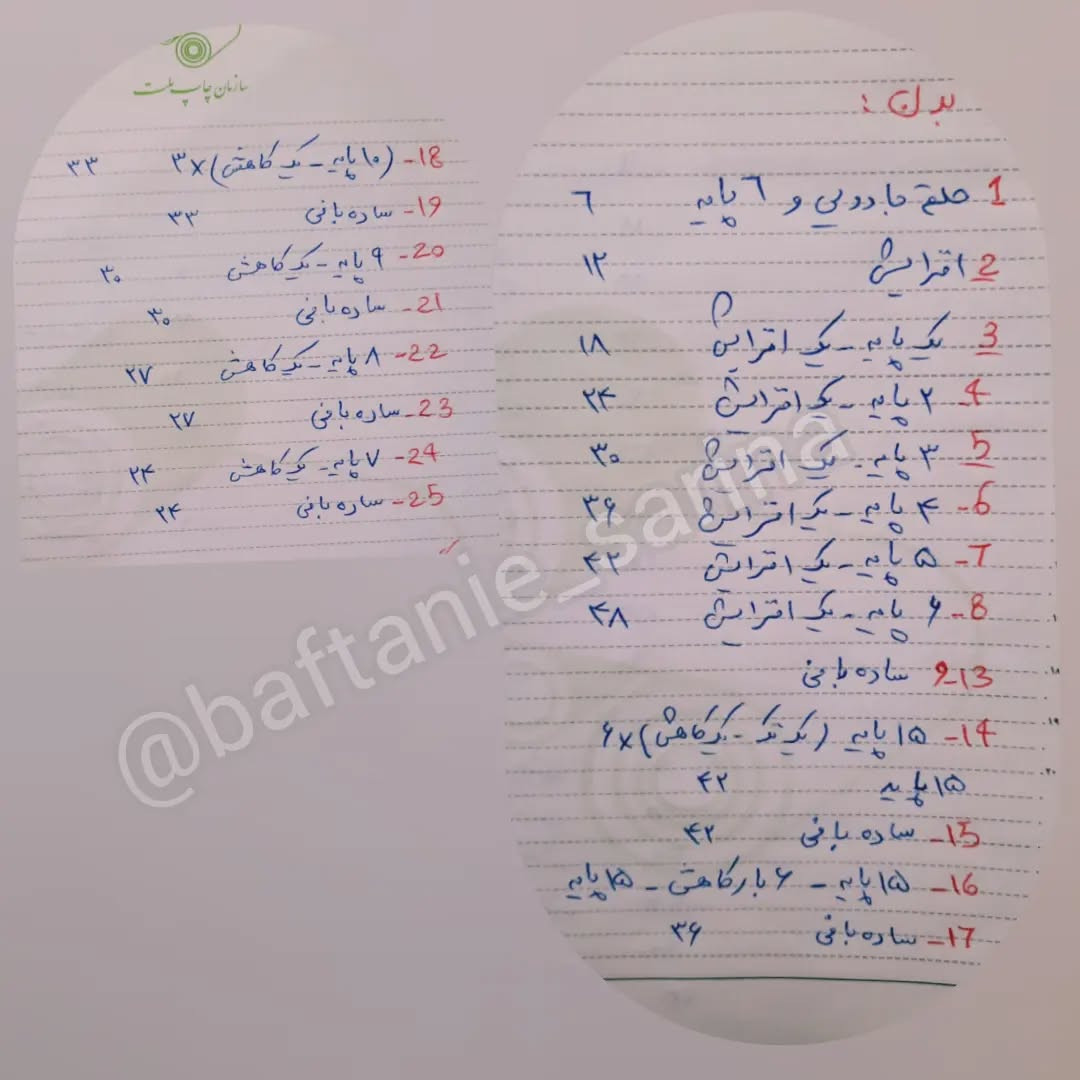 بدن :
1 حلقه جادویی و ٦ پایه ٦
2 افزایش ۱۲
3 یک پایه - یک افزایش ۱۸
4- ۲ پایه - یک افزایش ۲۴
5 ۳ پایه - یک افزایش ۳۰
6- ۴ پایه - یک افزایش ۳۶
7- ۵ پایه - یک افزایش ۴۲
8- ۶ پایه - یک افزایش ۴۸
9-13 ساده بافی
14- ۱۵ پایه (یک تک - یک کاهش)×۶
۱۵ پایه ۴۲
15- ساده بافی ۴۲
16- ۱۵ پایه - ۶ بار کاهش - ۱۵ پایه
17- ساده بافی ۳۶
سازمان چاپ ملت
18- (۱۰ پایه - یک کاهش)×۳ ۳۳
19- ساده بافی ۳۳
20- ۹ پایه - یک کاهش ۳۰
21- ساده بافی ۳۰
22- ۸ پایه - یک کاهش ۲۷
23- ساده بافی ۲۷
24- ۷ پایه - یک کاهش ۲۴
25- ساده بافی ۲۴
@baftanie_sarina